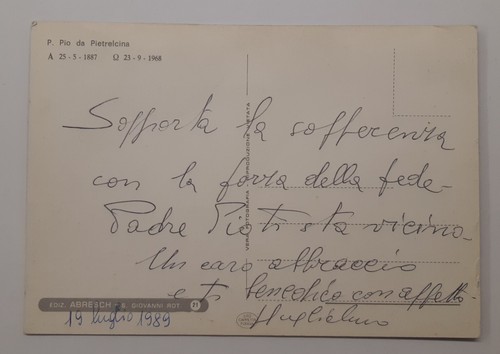 P. Pio da Pietrelcina
A 25 - 5 - 1887 Ω 23 - 9 - 1968
Sopporta la sofferenza
con la forza della fede -
Padre Pio ti sta vicino -
Un caro abbraccio
e ti benedico con affetto
EDIZ. ABRESCH - S. GIOVANNI ROT. 11
19 luglio 1989
VERA FOTOGRAFIA RIPRODUZIONE VIETATA